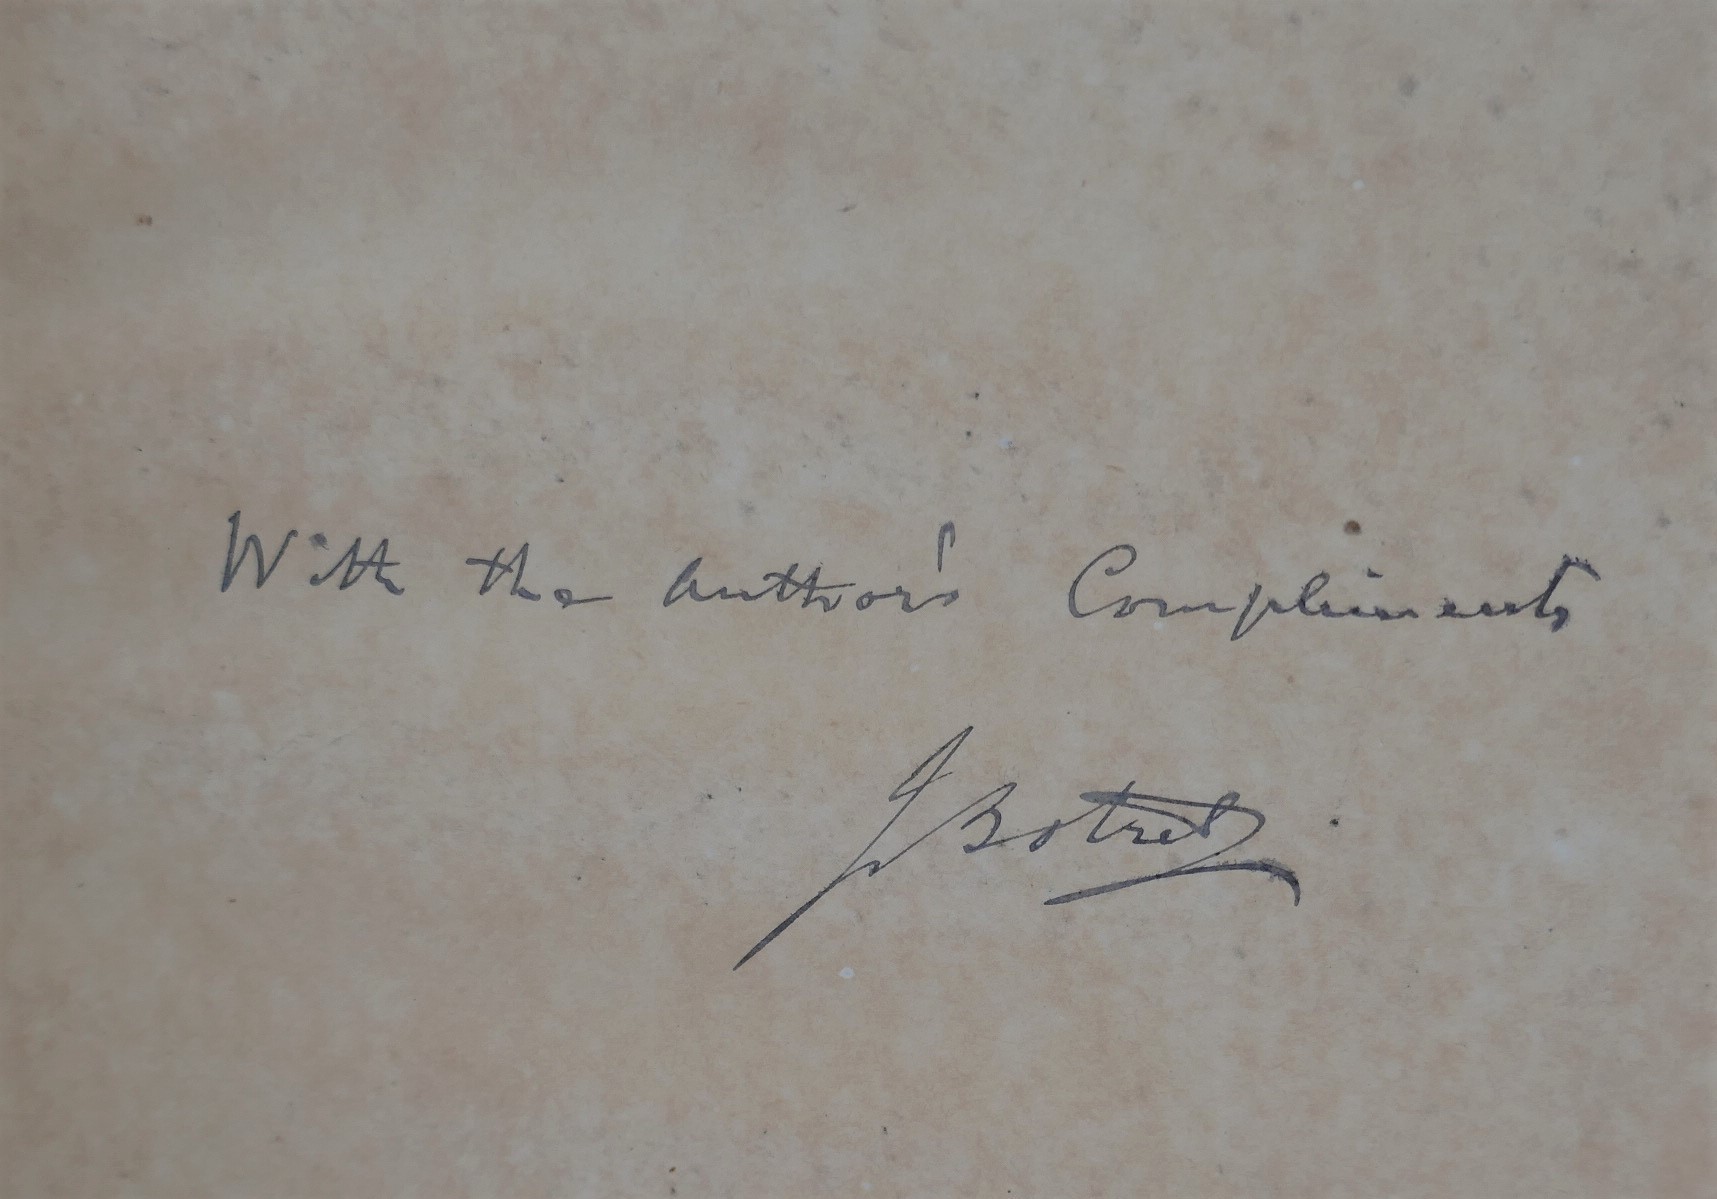 With the Author's Compliments
J Botrel